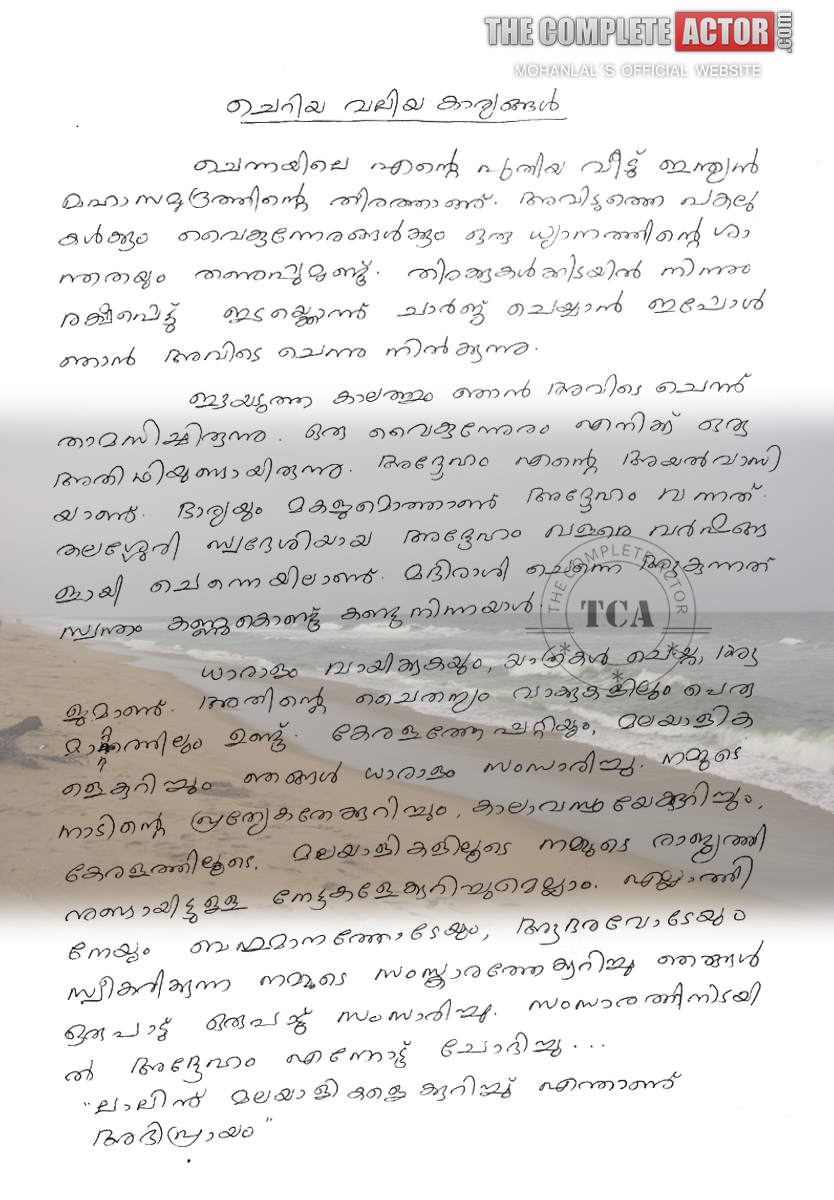 THE COMPLETE ACTOR.com
MOHANLAL'S OFFICIAL WEBSITE
ചെറിയ വലിയ കാര്യങ്ങൾ
ചെന്നയിലെ എന്റെ പുതിയ വീട്ട് ഇന്ത്യൻ
മഹാസമുദ്രത്തിന്റെ തീരത്താണ്. അവിടുത്തെ പകലു
കൾക്കും വൈകുന്നേരങ്ങൾക്കും ഒരു ധ്യാനത്തിന്റെ ശാ
ന്തതയും തണുപ്പുമുണ്ട്. തിരക്കുകൾക്കിടയിൽ നിന്നും
രക്ഷപെട്ട് ഇടയ്ക്കൊന്ന് ചാർജ്ജ് ചെയ്യാൻ ഇപ്പോൾ
ഞാൻ അവിടെ ചെന്നു നിൽക്കുന്നു.
ഈയടുത്ത കാലത്തും ഞാൻ അവിടെ ചെന്ന്
താമസിച്ചിരുന്നു. ഒരു വൈകുന്നേരം എനിക്ക് ഒരു
അതിഥിയുണ്ടായിരുന്നു. അദ്ദേഹം എന്റെ അയൽവാസി
യാണ്. ഭാര്യയും മകളുമൊത്താണ് അദ്ദേഹം വന്നത്.
തലശ്ശേരി സ്വദേശിയായ അദ്ദേഹം വളരെ വർഷങ്ങ
ളായി ചെന്നെയിലാണ്. മദിരാശി ചെന്നൈ ആകുന്നത്
സ്വന്തം കണ്ണുകൊണ്ട് കണ്ടുനിന്നയാൾ.
THE COMPLETE ACTOR
TCA
ധാരാളം വായിക്കുകയും, യാത്രകൾ ചെയ്യു, ആ
ളുമാണ്. അതിന്റെ ചൈതന്യം വാക്കുകളിലും പെരു
മാറ്റത്തിലും ഉണ്ട്. കേരളത്തേപ്പറ്റിയും, മലയാളിക
ളെകുറിച്ചും ഞങ്ങൾ ധാരാളം സംസാരിച്ചു. നമ്മുടെ
നാടിന്റെ പ്രത്യേകതകേക്കുറിച്ചും, കാലാവസ്ഥയേക്കുറിച്ചും,
കേരളത്തിലൂടെ, മലയാളികളിലൂടെ നമ്മുടെ രാജ്യത്തി
നുണ്ടായിട്ടുള്ള നേട്ടകളേക്കുറിച്ചുമെല്ലാം. എല്ലാത്തി
നേയും ബഹുമാനത്തോടേയും, ആദരവോടേയും
സ്വീകരിക്കുന്ന നമ്മുടെ സംസ്കാരത്തേക്കുറിച്ചു ഞങ്ങൾ
ഒരുപാട് ഒരുപാട് സംസാരിച്ചു. സംസാരത്തിനിടയി
ൽ അദ്ദേഹം എന്നോട് ചോദിച്ചു...
"ലാലിന് മലയാളികളെക്കുറിച്ച് എന്താണ്
അഭിപ്രായം"